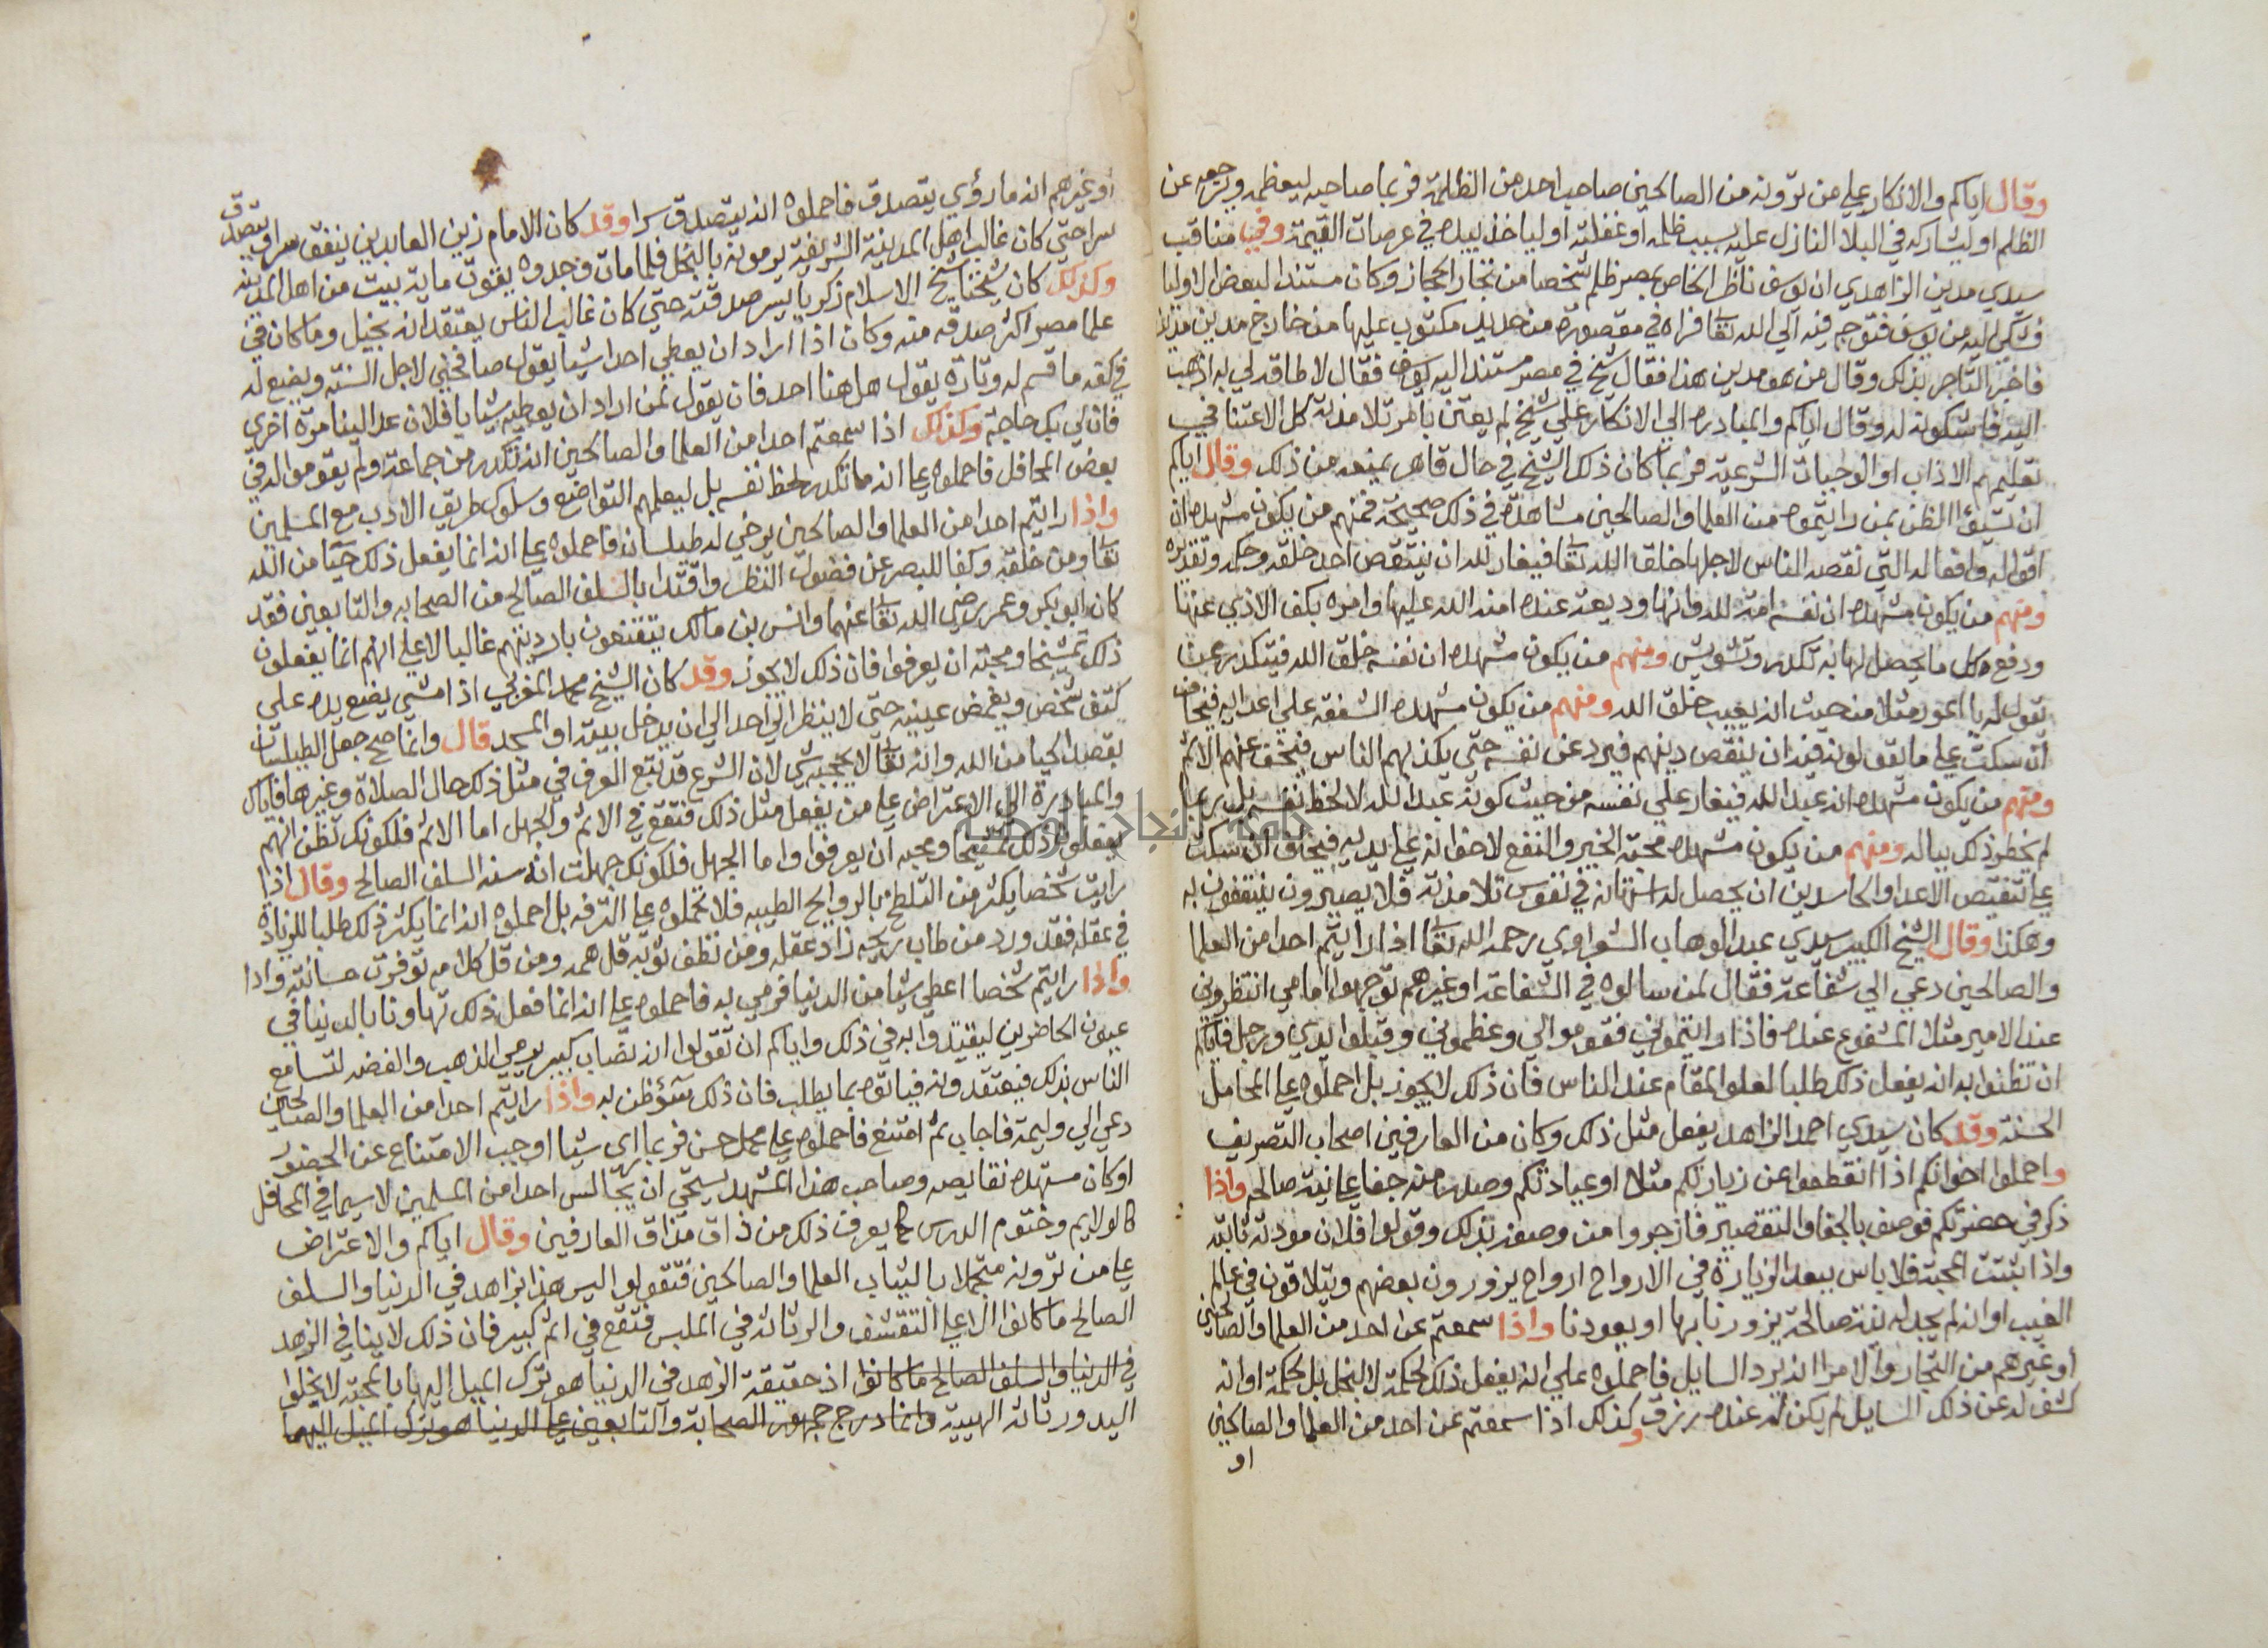 وقال اياكم والانكار علي من ترونه من الصالحين صاحب احد من الظلمة فربما صاحبه ليعظمه ويرجعه عن
الظلم او ليشاركه في البلا النازل عليه بسبب ظلمه او غفلته او لياخذ بيده في عرصات القيمة وفي مناقب
سيدي مدين الزاهدي ان يوسف ناظر الخاص بمصر ظلم شخصا من تجار الحجاز وكان مستندا لبعض الاوليا
فشكي اليه من يوسف فتوجه فيه الي الله تعا فراه في مقصورة من حديد مكتوب عليها من خارج مدين
فاخبر التاجر بذلك وقال من هو مدين هذا فقال شيخ في مصر مستند اليه يوسف فقال لا طاقة لي به اذهب
اليه فاشكوته له وقال اياكم والمبادره الي الانكار علي شيخ لم يعتن بامر تلامذته كل الاعتنا في
تعليمهم الاداب او الوجبات الشرعية فربما كان ذلك الشيخ في حال قاهر يمنعه من ذلك وقال اياكم
ان تسيؤا الظن بمن رايتموه من العلما والصالحين مشاهدة في ذلك صحيحة فمنهم من يكون مشهده ان
اقواله وافعاله التي نقصه الناس لاجلها خلق الله تعا فيغار لله ان ينتقص احد خلقه وحكمه وتقديره
ومنهم من يكون مشهده ان نفسه امة لله وانها وديعة عنده امنه الله عليها وامره بكف الاذي عنها
ودفع كل ما يحصل لها به تكدر وتشويش ومنهم من يكون مشهده ان نفسه خلق الله فيتكدر ممن
يقول له يا اعور مثلا من حيث انه يعيب خلق الله ومنهم من يكون مشهده الشفقة علي اعدايه فيخاف
ان سكت علي ما يقولونه فيه ان ينقص دينهم فيرد عن نفسه حتي يكذبهم الناس فيخف عنهم الاثم
ومنهم من يكون مشهده انه عبد الله فيغار علي نفسه من حيث كونه عبدا لله لا لحظ نفسه بل ربما
لم يخطر ذلك بباله ومنهم من يكون مشهده محبة الخير والنفع لاخوانه علي يديه فيخاف ان سكت
علي تنقيص الاعدا والحاسدين ان يحصل له استهانه في نفوس تلامذته فلا يصيرون ينتفعون به
وهكذا وقال الشيخ الكبير سيدي عبد الوهاب الشعراوي رحمه الله تعا اذا رايتم احدا من العلما
والصالحين دعي الي شفاعة فقال لمن سالوه في الشفاعة او غيرهم توجهوا امامي انتظروني
عند الامير مثلا المشفوع عنده فاذا رايتموني فقوموا الي وعظموني وقبلوا يدي ورجلي فاياكم
ان تظنوا به انه يفعل ذلك طلبا لعلو المقام عند الناس فان ذلك لا يجوز بل احملوه علي المحامل
الحسنه وقد كان سيدي احمد الزاهد يفعل مثل ذلك وكان من العارفين اصحاب التصريف
واحملوا اخوانكم اذا انقطعوا عن زيارتكم مثلا او عيادتكم وصدر منه جفا علي نية صالحه واذا
ذكر في حضرتكم فوصف بالجفا والتقصير فازجروا من وصفه بذلك وقولوا فلان مودته ثابته
واذا ثبتت المحبة فلا باس ببعد الزيارة في الارواح ارواح يزورون بعضهم ويتلاقون في عالم
الغيب او انه لم يجد له نية صالحة يزورنا بها او يعودنا واذا سمعتم عن احد من العلما والصالحين
او غيرهم من التجار والامرا انه يرد السايل فاحملوه علي انه يفعل ذلك لحكمة لا لبخل بل لحكمة او انه
كشف له عن ذلك السايل لم يكن له عنده رزق وكذلك اذا سمعتم عن احد من العلما والصالحين
او
او غيرهم انه ما رؤي يتصدق فاحملوه انه يتصدق سرا وقد كان الامام زين العابدين ينفق سرا ويتصدق
سرا حتي كان غالب اهل المدينة الشريفة يرمونه بالبخل فلما مات وجدوه يقوت ماية بيت من اهل المدينة
وكذلك كان شيخنا شيخ الاسلام زكريا يسر صدقته حتي كان غالب الناس يعتقد انه بخيل وما كان في
علما مصر اكثر صدقه منه وكان اذا اراد ان يعطي احدا شيا يقول صافحني لاجل السنة ويضع له
في كفه ما قسم له وتارة يقول هل هنا احد فان يقول لمن اراد ان يعطيه شيا يا فلان عد الينا مرة اخري
فان لي بك حاجة وكذلك اذا سمعتم احدا من العلما والصالحين انه تكدر من جماعة ولم يقوموا له في
بعض المحافل فاحملوه علي انه ما تكدر لحظ نفسه بل ليعلمهم التواضع وسلوك طريق الادب مع المسلمين
واذا رايتم احدا من العلما والصالحين يرخي له طيلسانه فاحملوه علي انه انما يفعل ذلك حيا من الله
تعا ومن خلقه وكفا للبصر عن فضول النظر واقتدا بالسلف الصالح من الصحابه والتابعين فقد
كان ابو بكر وعمر رضي الله تعا عنهما وانس بن مالك يتقنعون بارديتهم غالبا لا علي انهم انما يفعلون
ذلك تمشيخا ومحبة ان يعرفوا فان ذلك لا يجوز وقد كان الشيخ محمد المغربي اذا مشي يضع يده علي
كتف شخص ويغمض عينيه حتي لا ينظر الي احد الي ان يدخل بيته او المسجد قال وانما صح جعل الطيلسان
بقصد الحيا من الله وانه تعا لا يحجبه شي لان الشرع قد يتبع العرف في مثل ذلك حال الصلاة وغيرها فاياك
والمبادرة الي الاعتراض علي من يفعل مثل ذلك فتقع في الاثم والجهل اما الاثم فلكونك تظن انهم
يفعلون ذلك تمشيخا ومحبه ان يعرفوا واما الجهل فلكونك جهلت انه سنه السلف الصالح وقال اذا
رايت شخصا يكثر من التلطخ بالروايح الطيبه فلا تحملوه علي الترفه بل احملوه انه انما يكثر ذلك طلبا للزيادة
في عقله فقد ورد من طاب ريحه زاد عقله ومن نظف ثوبه قل همه ومن قل كلامه توفرت حسانته واذا
واذا رايتم شخصا اعطي شيا من الدنيا فرمي به فاحملوه علي انه انما فعل ذلك تهاونا بالدنيا في
عيون الحاضرين ليقتدوا به في ذلك واياكم ان تقولوا انه نصاب كبير يرمي الذهب والفضه لتسامع
الناس بذلك فيعتقدونه فياتوه بما يطلب فان ذلك سؤ ظن به واذا رايتم احدا من العلما والصالحين
دعي الي وليمة فاجاب ثم امتنع فاحملوه علي محمل حسن فربما راي شيا اوجب الامتناع عن الحضور
او كان مشهده نقايصه وصاحب هذا المشهد يستحي ان يجالس احدا من المسلمين لا سيما في المحافل
كالولايم وختوم الدرس كما يعرف ذلك من ذاق مذاق العارفين وقال اياكم والاعتراض
علي من ترونه متجملا بالثياب العلما والصالحين فتقولوا ليس هذا بزاهد في الدنيا والسلف
الصالح ما كانوا الا علي التقشف والرثاثه في الملبس فتقع في اثم كبير فان ذلك لا ينافي الزهد
في الدنيا والسلف الصالح ما كانوا اذ حقيقة الزهد في الدنيا هو ترك الميل اليها بالمحبة لا بخلو
اليد ورثاثة الهيية وانما درج جمهور الصحابة والتابعين علي الدنيا هو ترك الميل اليها
جامعة النجاح الوطنية